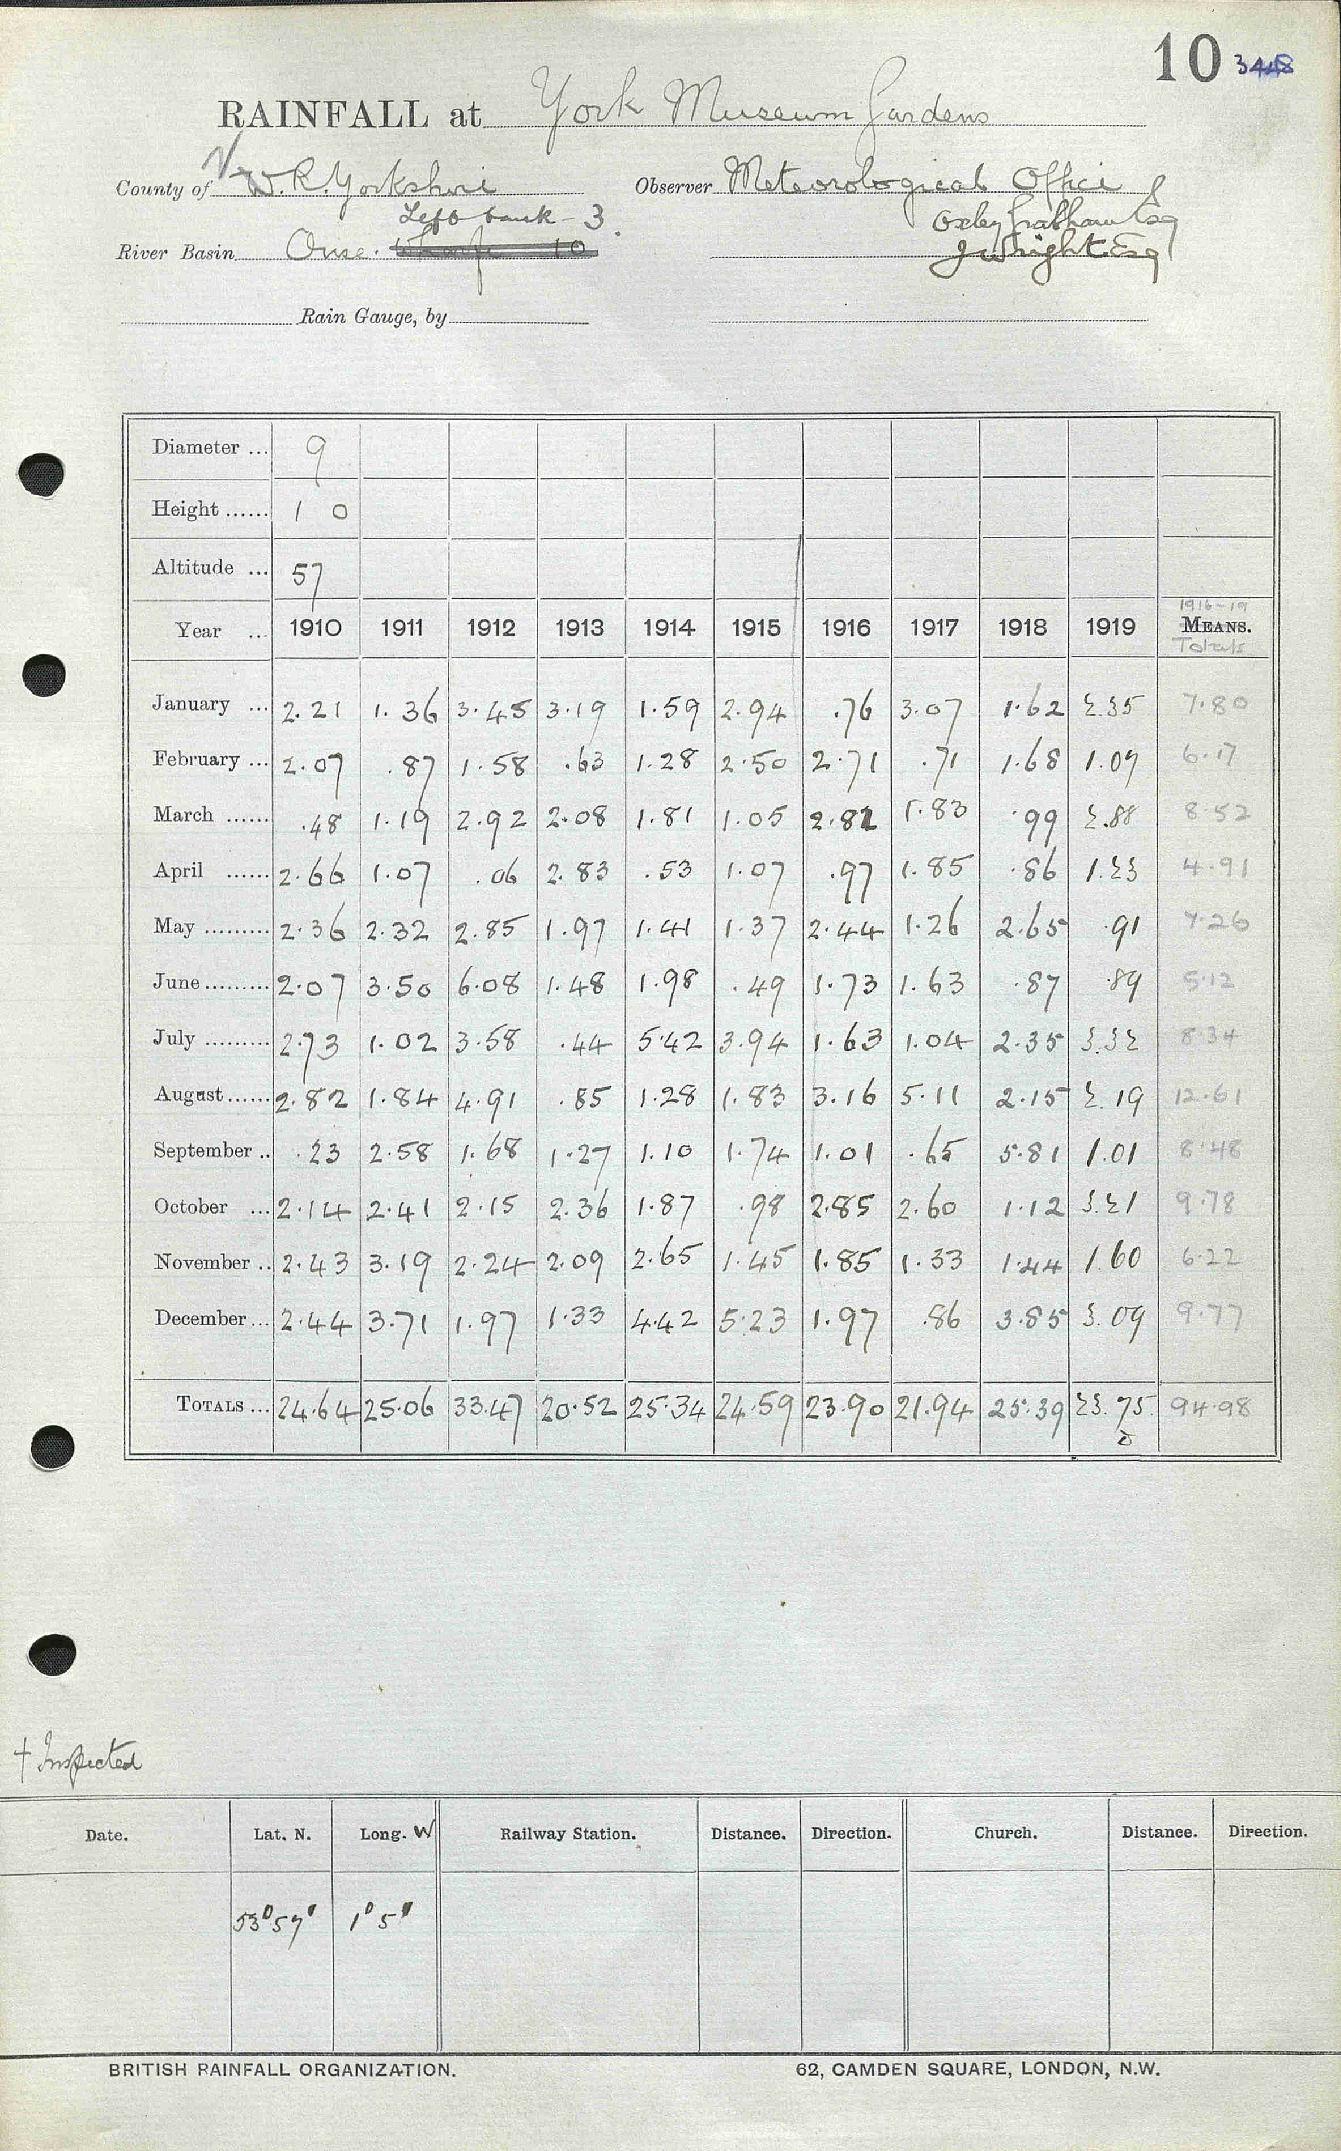 10 3448
RAINFALL at York Museum Gardens
County of W.R. Yorkshire Observer Meteorological Office
Left bank - 3. Oxley Grabham Esq
River Basin Ouse. Wharfe 10 J Wright Esq
Rain Gauge, by
Diameter ... 9
Height ...... 1 0
Altitude ... 57
1916-19
Year ... 1910 1911 1912 1913 1914 1915 1916 1917 1918 1919 MEANS.
Totals
January ... 2.21 1.36 3.45 3.19 1.59 2.94 .76 3.07 1.62 2.35 7.80
February ... 2.07 .87 1.58 .63 1.28 2.50 2.71 .71 1.68 1.07 6.17
March ...... .48 1.19 2.92 2.08 1.81 1.05 2.82 1.83 .99 2.88 8.52
April ...... 2.66 1.07 .06 2.83 .53 1.07 .97 1.85 .86 1.23 4.91
May ......... 2.36 2.32 2.85 1.97 1.41 1.37 2.44 1.26 2.65 .91 7.26
June ......... 2.07 3.50 6.08 1.48 1.98 .49 1.73 1.63 .87 .89 5.12
July ......... 2.73 1.02 3.58 .44 5.42 3.94 1.63 1.04 2.35 3.32 8.34
August ...... 2.82 1.84 4.91 .85 1.28 1.83 3.16 5.11 2.15 2.19 12.61
September .. .23 2.58 1.68 1.27 1.10 1.74 1.01 .65 5.81 1.01 8.48
October ... 2.14 2.41 2.15 2.36 1.87 .98 2.85 2.60 1.12 3.21 9.78
November .. 2.43 3.19 2.24 2.09 2.65 1.45 1.85 1.33 1.44 1.60 6.22
December ... 2.44 3.71 1.97 1.33 4.42 5.23 1.97 .86 3.85 3.09 9.77
TOTALS ... 24.64 25.06 33.47 20.52 25.34 24.59 23.90 21.94 25.39 23.75 94.98
† Inspected
Date. Lat. N. Long. W Railway Station. Distance. Direction. Church. Distance. Direction.
53°57' 1°5'
BRITISH RAINFALL ORGANIZATION. 62, CAMDEN SQUARE, LONDON, N.W.